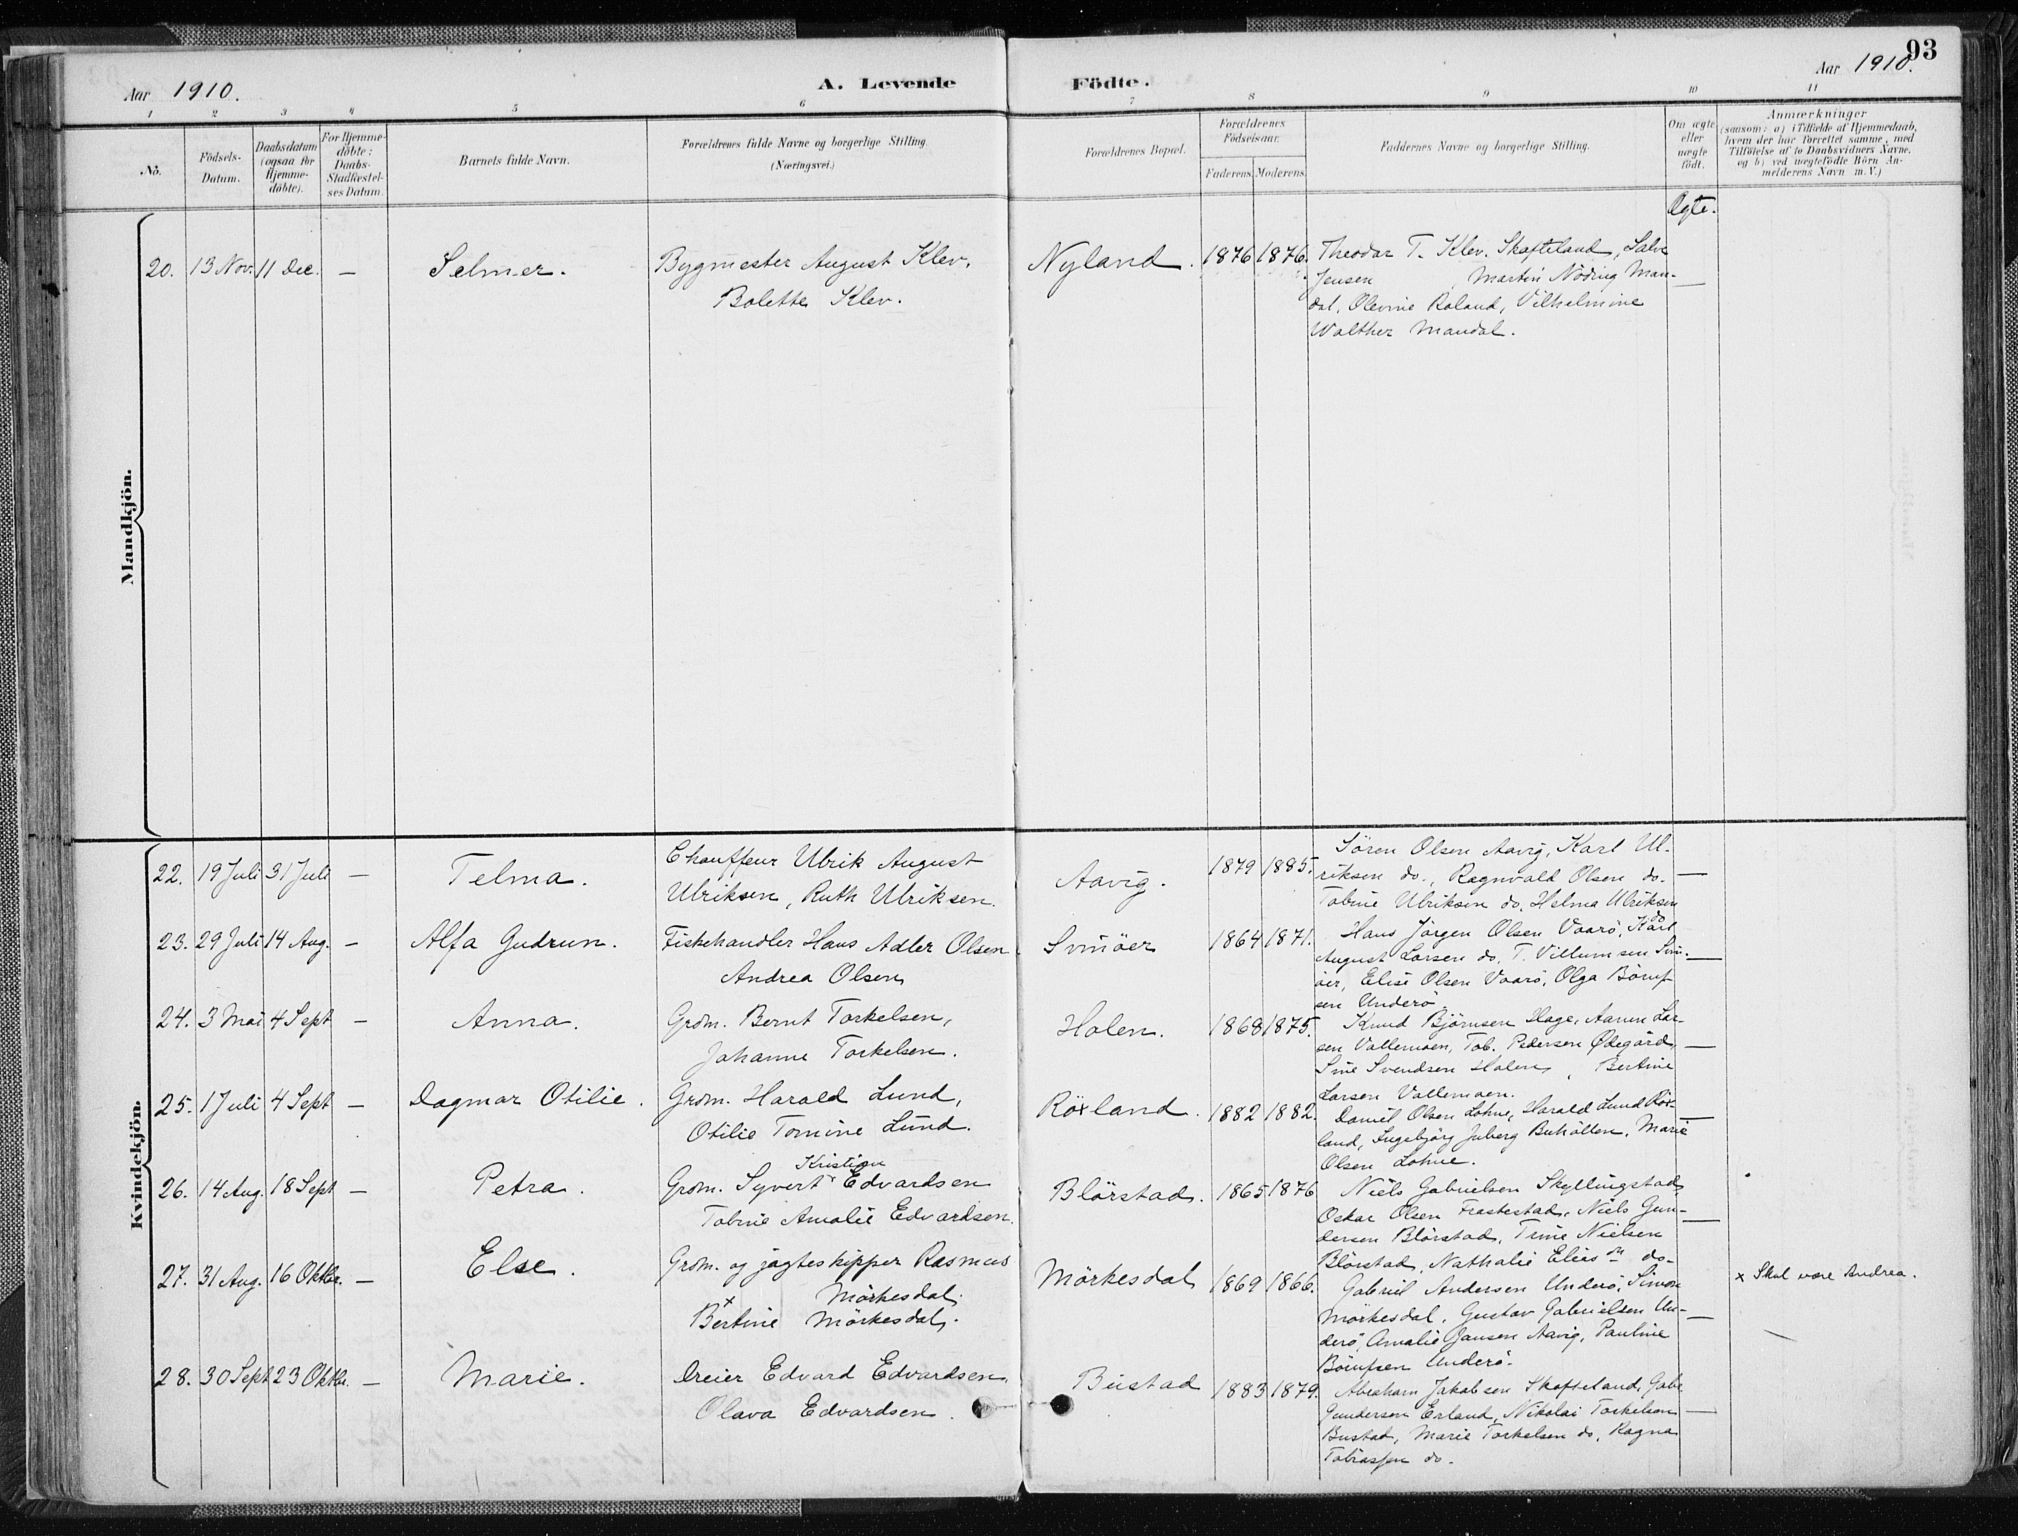 93
Aar 1910.
A. Levende Födte.
Aar 1910.
1 2 3 4 5 6 7 8 9 10 11
No.
Födsels-
Datum.
Daabsdatum
(ogsaa for
Hjemme-
döbte).
For Hjemme-
döbte;
Daabs-
Stadfæstel-
ses Datum.
Barnets fulde Navn.
Forældrenes fulde Navne og borgerlige Stilling.
(Næringsvei.)
Forældrenes Bopæl.
Forældrenes
Födselsaar.
Faderens. Moderens.
Faddernes Navne og borgerlige Stilling.
Om ægte
eller
uægte
födt.
Anmærkninger
(saasom: a) i Tilfælde af Hjemmedaab,
hvem der har forrettet samme, med
Tilföielse af to Daabsvidners Navne,
og b) ved uægtefödte Börn An-
melderens Navn m. V.)
Mandkjön.
Ægte.
20. 13 Nov. 11 Dec. — Selmer.
Bygmester August Klev,
Bolette Klev.
Nyland. 1876 1876.
Theodor T. Klev, Skofteland, Salve
Jensen Martin Noding Man-
dal, Olevine Roland, Vilhelmine
Walther Mandal.
—
Kvindekjön.
22. 19 Juli 31 Juli — Telma.
Chauffeur Ulrik August
Ulriksen, Ruth Ulriksen.
Aavig. 1879 1885.
Sören Olsen Aavig, Karl Ul-
riksen do., Ragnvald Olsen do. —
Tobine Ulriksen do. Helma Ulriksen
do
23. 29 Juli 14 Aug. — Alfa Gudrun.
Fiskehandler Hans Adler Olsen
Andrea Olsen
Svinöer 1864 1871.
Hans Jörgen Olsen Vaarö, Karl
August Larsen do, T. Villumsen Svin- —
öer, Elise Olsen Vaarö, Olga Böruf-
sen Underö
24. 3 Mai 4 Sept — Anna.
Grdm. Bernt Torkelsen,
Johanne Torkelsen.
Holen. 1868 1875.
Knud Björnsen Hage, Aanen Lar-
sen Vallemoen, Tob. Pedersen Ødegård, —
Sine Svendsen Holen, Bertine
Larsen Vallemoen.
25. 1 Juli 4 Sept — Dagmar Otilie.
Grdm. Harald Lund,
Otilie Tomine Lund.
Röxland. 1882 1882.
Daniel Olsen Lohne, Harald Lund Röx-
land, Ingebjörg Juberg Buhölten, Marie —
Olsen Lohne.
26. 14 Aug. 18 Sept — Petra.
Kristian
Grdm. Syvert Edvardsen
Tobine Amalie Edvardsen.
Blörstad. 1865 1876
Niels Gabrielsen Skyllingstad,
Oskar Olsen Frastestad, Niels Gun- —
dersen Blörstad, Trine Nielsen
Blörstad, Nathalie Eliasn do-
27. 31 Aug. 16 Oktbr. — Else.
Grdm. og jagteskipper Rasmus
Mörkesdal,
x
Bertine Mörkesdal.
Mörkesdal 1869 1866.
Gabriel Andersen Underö, Simon
Mörkesdal, Gustav Gabrielsen Un- —
derö, Amalie Jansen Aavig, Pauline
Börufsen Underö.
x Skal være Andrea.
28. 30 Sept 23 Oktbr. — Marie.
Dreier Edvard Edvardsen,
Olava Edvardsen.
Bustad 1883 1879.
Abraham Jakobsen Skofteland, Gabr.
Gundersen Erland, Nikolai Torkelsen —
Bustad, Marie Torkelsen do, Ragna
Tobiassen do.